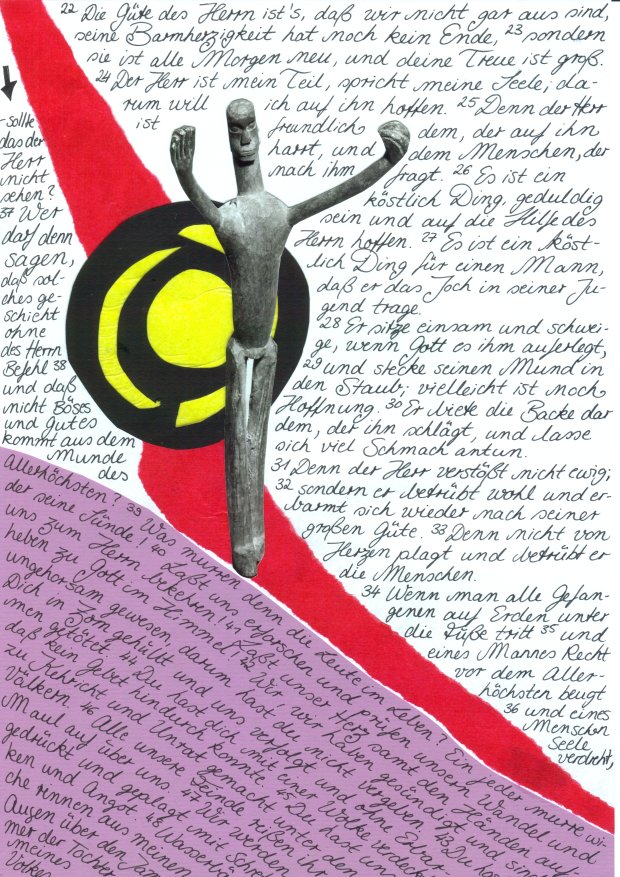 22 Die Güte des Herrn ist's, daß wir nicht gar aus sind,
seine Barmherzigkeit hat noch kein Ende, 23 sondern
sie ist alle Morgen neu, und deine Treue ist groß.
24 Der Herr ist mein Teil, spricht meine Seele; da-
rum will ich auf ihn hoffen. 25 Denn der Herr
ist freundlich dem, der auf ihn
harrt, und dem Menschen, der
nach ihm fragt. 26 Es ist ein
köstlich Ding, geduldig
sein und auf die Hilfe des
Herrn hoffen. 27 Es ist ein köst-
lich Ding für einen Mann,
daß er das Joch in seiner Ju-
gend trage.
28 Er sitze einsam und schwei-
ge, wenn Gott es ihm auferlegt,
29 und stecke seinen Mund in
den Staub; vielleicht ist noch
Hoffnung. 30 Er biete die Backe dar
dem, der ihn schlägt, und lasse
sich viel Schmach antun.
31 Denn der Herr verstößt nicht ewig;
32 sondern er betrübt wohl und er-
barmt sich wieder nach seiner
großen Güte. 33 Denn nicht von
Herzen plagt und betrübt er
die Menschen.
34 Wenn man alle Gefan-
genen auf Erden unter
die Füße tritt 35 und
eines Mannes Recht
vor dem Aller-
höchsten beugt
36 und eines
Menschen
Seele
verdreht,
-sollte
das der
Herr
nicht
sehen?
37 Wer
darf denn
sagen,
daß sol-
ches ge-
schieht
ohne
des Herrn
Befehl 38
und daß
nicht Böses
und Gutes
kommt aus dem
Munde
des
Allerhöchsten? 39 Was murren denn die Leute im Leben? Ein jeder murre wi-
der seine Sünde! 40 Laßt uns erforschen und prüfen unsern Wandel und
uns zum Herrn bekehren! 41 Laßt unser Herz samt den Händen auf-
heben zu Gott im Himmel! 42 Wir haben gesündigt und sind
ungehorsam gewesen, darum hast du nicht vergeben. 43 Du hast
Dich in Zorn gehüllt und uns verfolgt und ohne Erbar-
men getötet. 44 Du hast dich mit einer Wolke verdeckt,
daß kein Gebet hindurch konnte. 45 Du hast uns
zu Kehricht und Unrat gemacht unter den
Völkern. 46 Alle unsere Feinde reißen ihr
Maul auf über uns. 47 Wir werden
gedrückt und geplagt mit Schrek-
ken und Angst. 48 Wasserbä-
che rinnen aus meinen
Augen über den Jam-
mer der Tochter
meines
Volkes